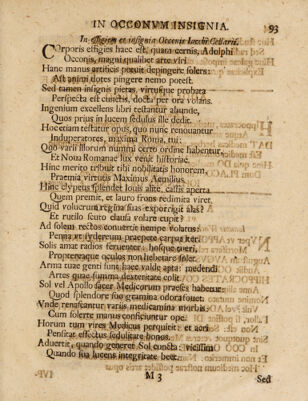 IN OCCONVM INSIGNIA.
93
In effigiem et insignia Occonis
Corporis effigies haec est, quam cernis, Adolphi
Occonis, magni qualibet arte viri
Hanc manus artificis potuit depingere solers:
Ast animi dotes pingere nemo potest.
Sed tamen insignis pietas, virtusque probata
Perspecta est cunctis, docta per ora volans.
Ingenium excellens libri testantur abunde,
Quos prius in lucem sedulus ille dedit.
Hoc etiam testatur opus, quo nunc renouantur
Induperatores, maxima Roma, tui:
Quo varii illorum nummi certo ordine habentur,
Et Noua Romanae lux venit historiae.
Hinc merito tribuit tibi nobilitatis honorem,
Praemia virtutis Maximus Aemilius.
Hinc clypeus splendet louis alite, cassis aperta
Quem premit, et lauro frons redimira viret.
Quid volucrum regina suas exporrigit alas?
Et rutilo scuto clausa volare cupit?
Ad solem rectos conuertit nempe volatus:
Penna at ryderum praepete carpit iter.
Solis amat radios feruenter, hosque tueri,
Propterea que oculos non hebetare solet.
Arma tuae genti sunt haec valde apta: medendi
Artes quae summa dexteritate colit.
Sol vel Apollo facer Medicorum praeses habetur:
Quod splendore suo gramina odora fouet.
Vnde renascuntur variis medicamina morbis,
Cum solerte manus conficiuntur ope.
Horum tum vires Medicus perquirit: et acri
Pensitat effectus sedulitate bonus.
Aduertit, quando generet Sol cuncta: vicissim
Quando sua lucens integritate beet.
M 3
Sed